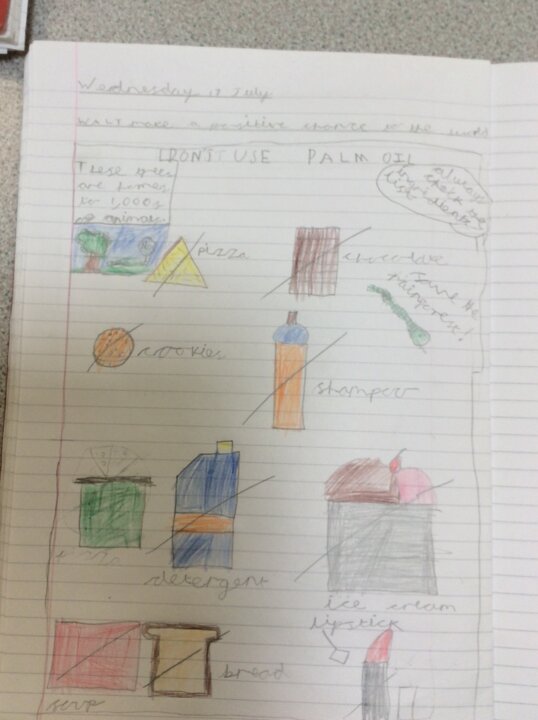 Wednesday 17 July
WALT make a positive change to the world
DON'T USE PALM OIL
These trees
are homes
to 1,000s
of animals.
always
check the
ingredients
list
pizza
chocolate
save the
rainforest!
cookies
shampoo
detergent
ice cream
lipstick
bread
soup